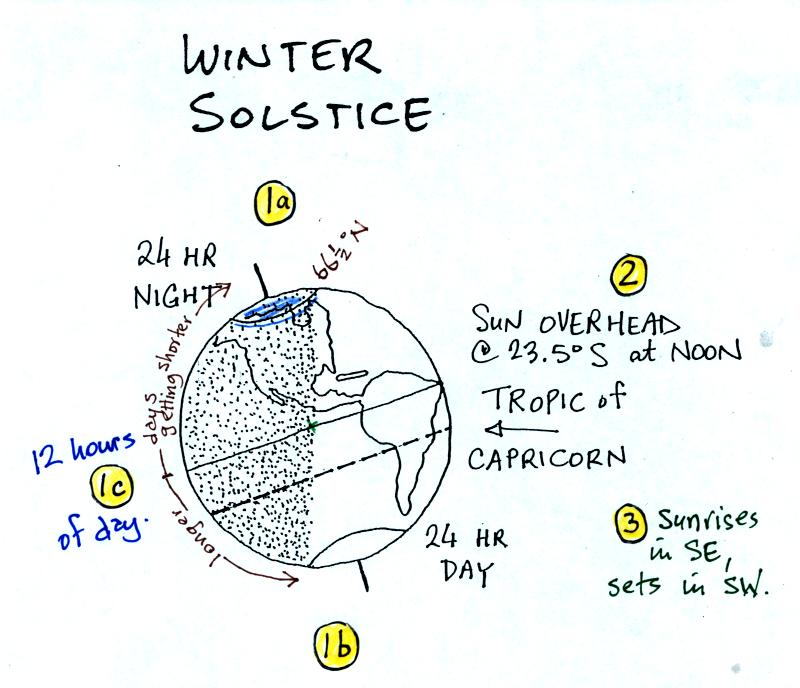 WINTER
SOLSTICE
1a
24 HR
NIGHT
66½°N
2
SUN OVERHEAD
@ 23.5°S at NOON
TROPIC of
CAPRICORN
days
getting shorter
12 hours
1c
of day.
longer
24 HR
DAY
3 Sunrises
in SE,
sets in SW.
1b